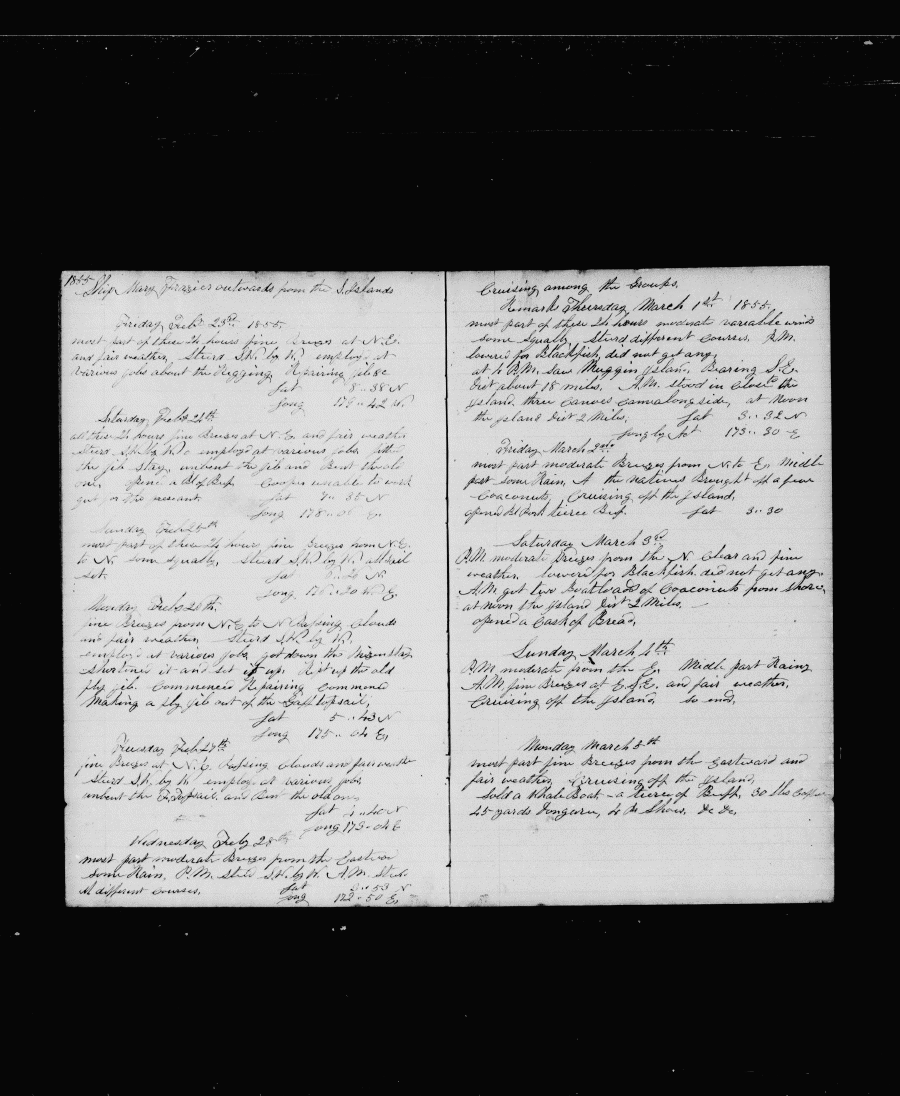 1855
Ship Mary Frazier outwards from the S. Islands
Friday Feb 23rd 1855
most part of these 24 hours fine Breezes at N.E.
and fair weather, Steerd S.W. by W. employd at
various jobs about the Rigging, Repairing jib &c
Lat 8..38 N
Long 179..42 W.
Saturday Feb 24th
all these 24 hours fine Breezes at N.E. and fair weather
Steerd S.W. by W. employd at various jobs.
the jib stay, unbent the jib and Bent the old
one, opend a Bl of Beef. Cooper unable to work
got for the present. Lat 7..35 N
Long 178.. En
Sunday Feb 25th
most part of these 24 hours fine Breezes from N.E.
to N. some squally, Steerd S.W. by W. all sail
set. Lat N.
Long E.
Monday Feby 26th.
fine Breezes from N.E. to N Passing Clouds
and fair weather Steerd S.W. by W.
employd at various jobs, got down the Mizen stay
Shortened it and set it up. Ript up the old
fly jib. Commenced Repairing Commend
Making a fly jib out of the Gaff topsail,
Lat 5..43 N
Long 175..04 E,
Tuesday Feb 27th
fine Breezes at N.E. Passing Clouds and fair weather
Steerd S.W. by W. employd at various jobs
unbent the F. Topsail, and Bent the old one
Lat 4..40 N
Long 173..04 E
Wednesday Feby 28th
most part moderate Breezes from the Eastward
some Rain, P.M. Steerd S.W. by W. A.M. Steerd
At different courses, Lat 3..53 N
Long 172..50 E,
Cruising among the Groups.
Remarks Thursday March 1st 1855,
most part of these 24 hours moderate variable winds
some squally, Steerd different Courses, P.M.
lowered for Blackfish, did not get any,
at 4 P.M. Saw Island, Bearing S.E.
Dist about 18 miles, A.M. stood in Close to the
Island, three Canoes Came along side, at Noon
the Island Dist 2 Miles, Lat 3..32 N
Long by 173..30 E
Friday March 2nd
most part moderate Breezes from N. to E, Middle
part some Rain, the natives Brought off a few
Coacanuts, Cruising off the Island,
opened Bl Pork tierce Beef. Lat 3..30
Saturday March 3rd
P.M. moderate Breezes from the N. Clear and fine
weather, lowered for Blackfish did not get any
A.M. got two Boatloads of Coaconuts from shore,
at noon the Island Dist 2 Miles,
opened a Cask of Bread,
Sunday March 4th
P.M. moderate from the E, Middle part Rainy
A.M. fine Breezes at E.S.E. and fair weather,
Cruising off the Island, so ends,
Monday March 5th
most part fine Breezes from the Eastward and
fair weather, Cruising off the Island,
Sold a Whale Boat, a tierce of Beef, 30 lbs
45 yards Dongaree, 4 Pr Shoes, &c &c,